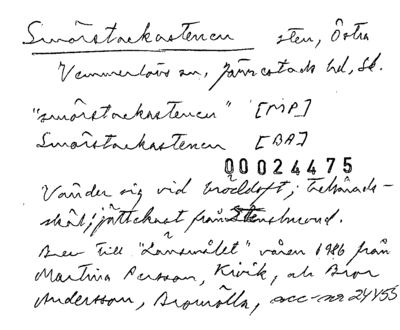 Smörstackastenen sten, Östra
Vemmerlövs sn, Järrestads hd, Sk.
"smörstackastenen" [MP]
Smörstackastenen [BA]
00024475
Vänder sig vid bröddoft; trehärads-
skäl; jättekast från Stenshuvud.
Brev till "Lansmålet" våren 1986 från
Martina Persson, Kivik, ale Bror
Andersson, Bromölla, acc-nr 24455